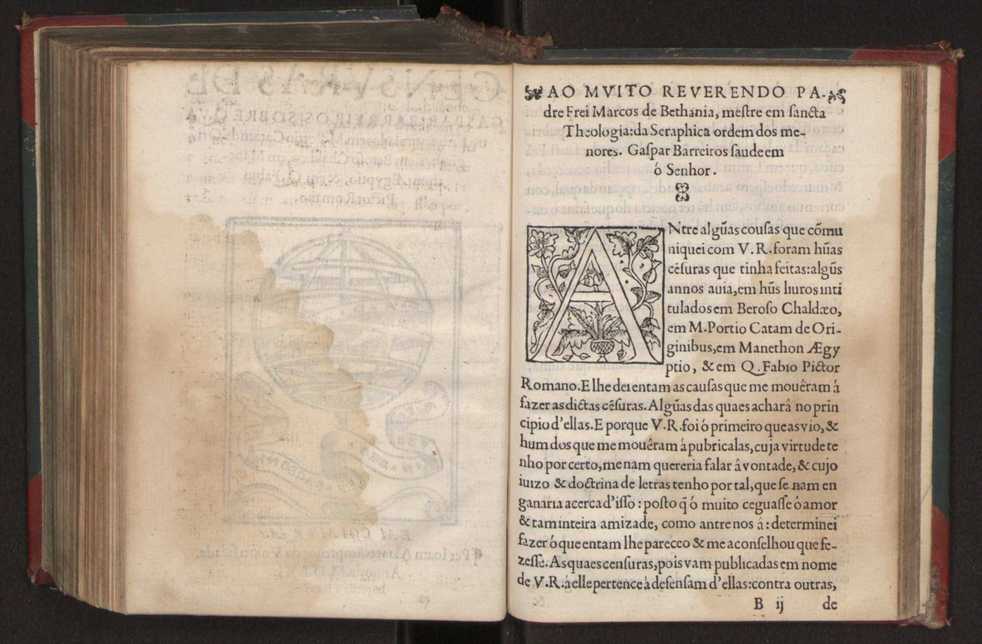 AO MVITO REVERENDO PA-
dre Frei Marcos de Bethania, mestre em sancta
Theologia: da Seraphica ordem dos me-
nores. Gaspar Barreiros saude em
ó Senhor.
ANtre algũas cousas que cõmu
niquei com V.R. foram hũas
cẽsuras que tinha feitas: algũs
annos auia, em hũs liuros inti
tulados em Beroso Chaldæo,
em M. Portio Catam de Ori-
ginibus, em Manethon Ægy
ptio, & em Q. Fabio Pictor
Romano. E lhe dei entam as causas que me mouêram á
fazer as dictas cẽsuras. Algũas das quaes achará no prin
cipio d'ellas. E porque V.R. foi ò primeiro que as vio, &
hum dos que me mouêram á pubricalas, cuja virtude te
nho por certo, me nam quereria falar â vontade, & cujo
iuizo & doctrina de letras tenho por tal, que se nam en
ganaria acerca d'isso: posto q̃ ò muito ceguasse ò amor
& tam inteira amizade, como antre nos á: determinei
fazer ò que entam lhe pareceo & me aconselhou que fe-
zesse. As quaes censuras, pois vam publicadas em nome
de V.R. à elle pertence à defensam d'ellas: contra outras,
B ij de